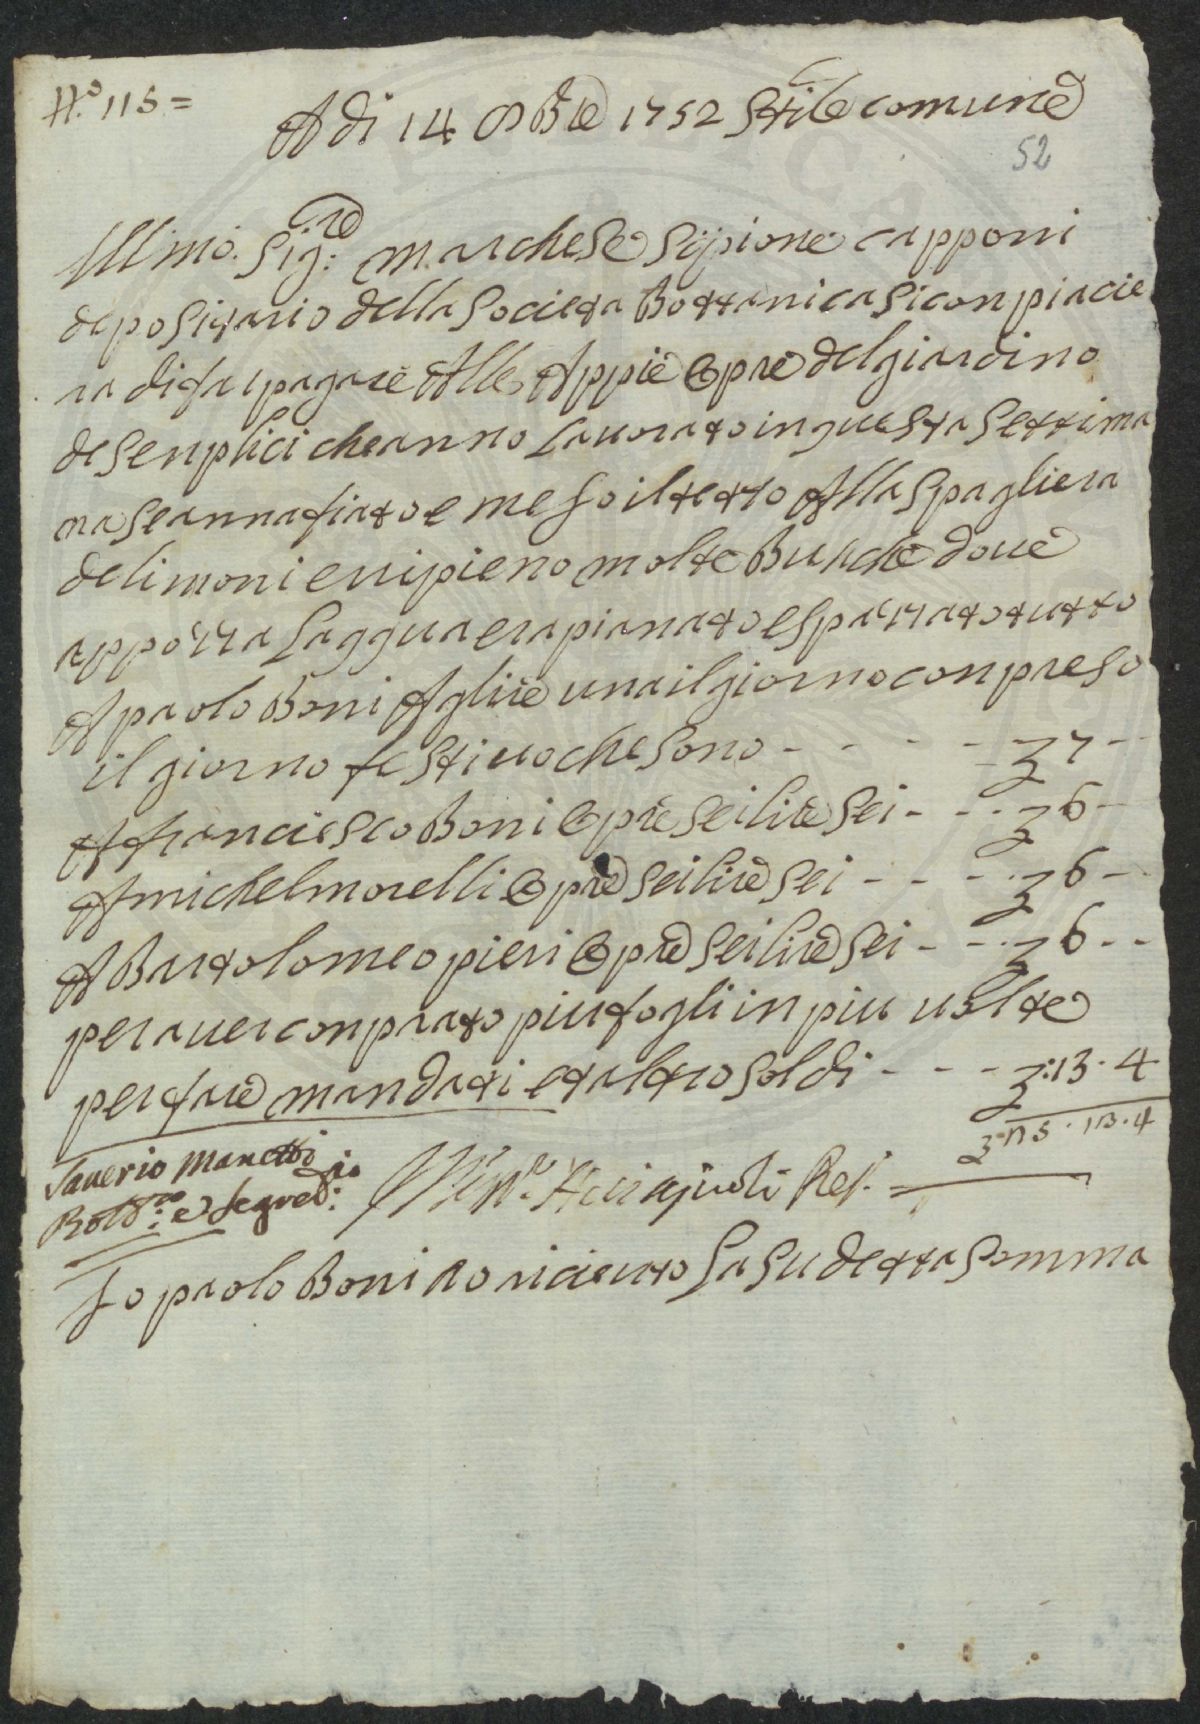 N.o 115 =
A di 14 8Bre 1752 Stile comune
52
Illmo. Sig:re marchese Sipione capponi
depositario della Societa Bottanica si conpiacie
ra di far pagare Alle Appie Opre del giardino
de Senplici che anno Lauorato in questa Settima
na Se annafiato e meso il tetto Alla Spagliera
de limoni e ripieno molte Buche doue
apporta Laqqua e rapianato e Spazzato tutto
A paolo Boni A lire una il giorno conpreso
il giorno festiuo che Sono - - - - - - 7 - -
A franciesco Boni Opre Sei lire Sei - - - - 6 -
A michel morelli Opre Sei lire Sei - - - - 6 - -
A Bartolomeo pieri Opre Sei lire Sei - - - - 6 - -
per auer conprato piu fogli in piu uolte
per fare mandati et altro Soldi - - - - :13 . 4
25 . 13 . 4
Sauerio Manetti
Bot:co e Segret:rio
Ref.
Io paolo Boni o riceuto La Sudetta Somma